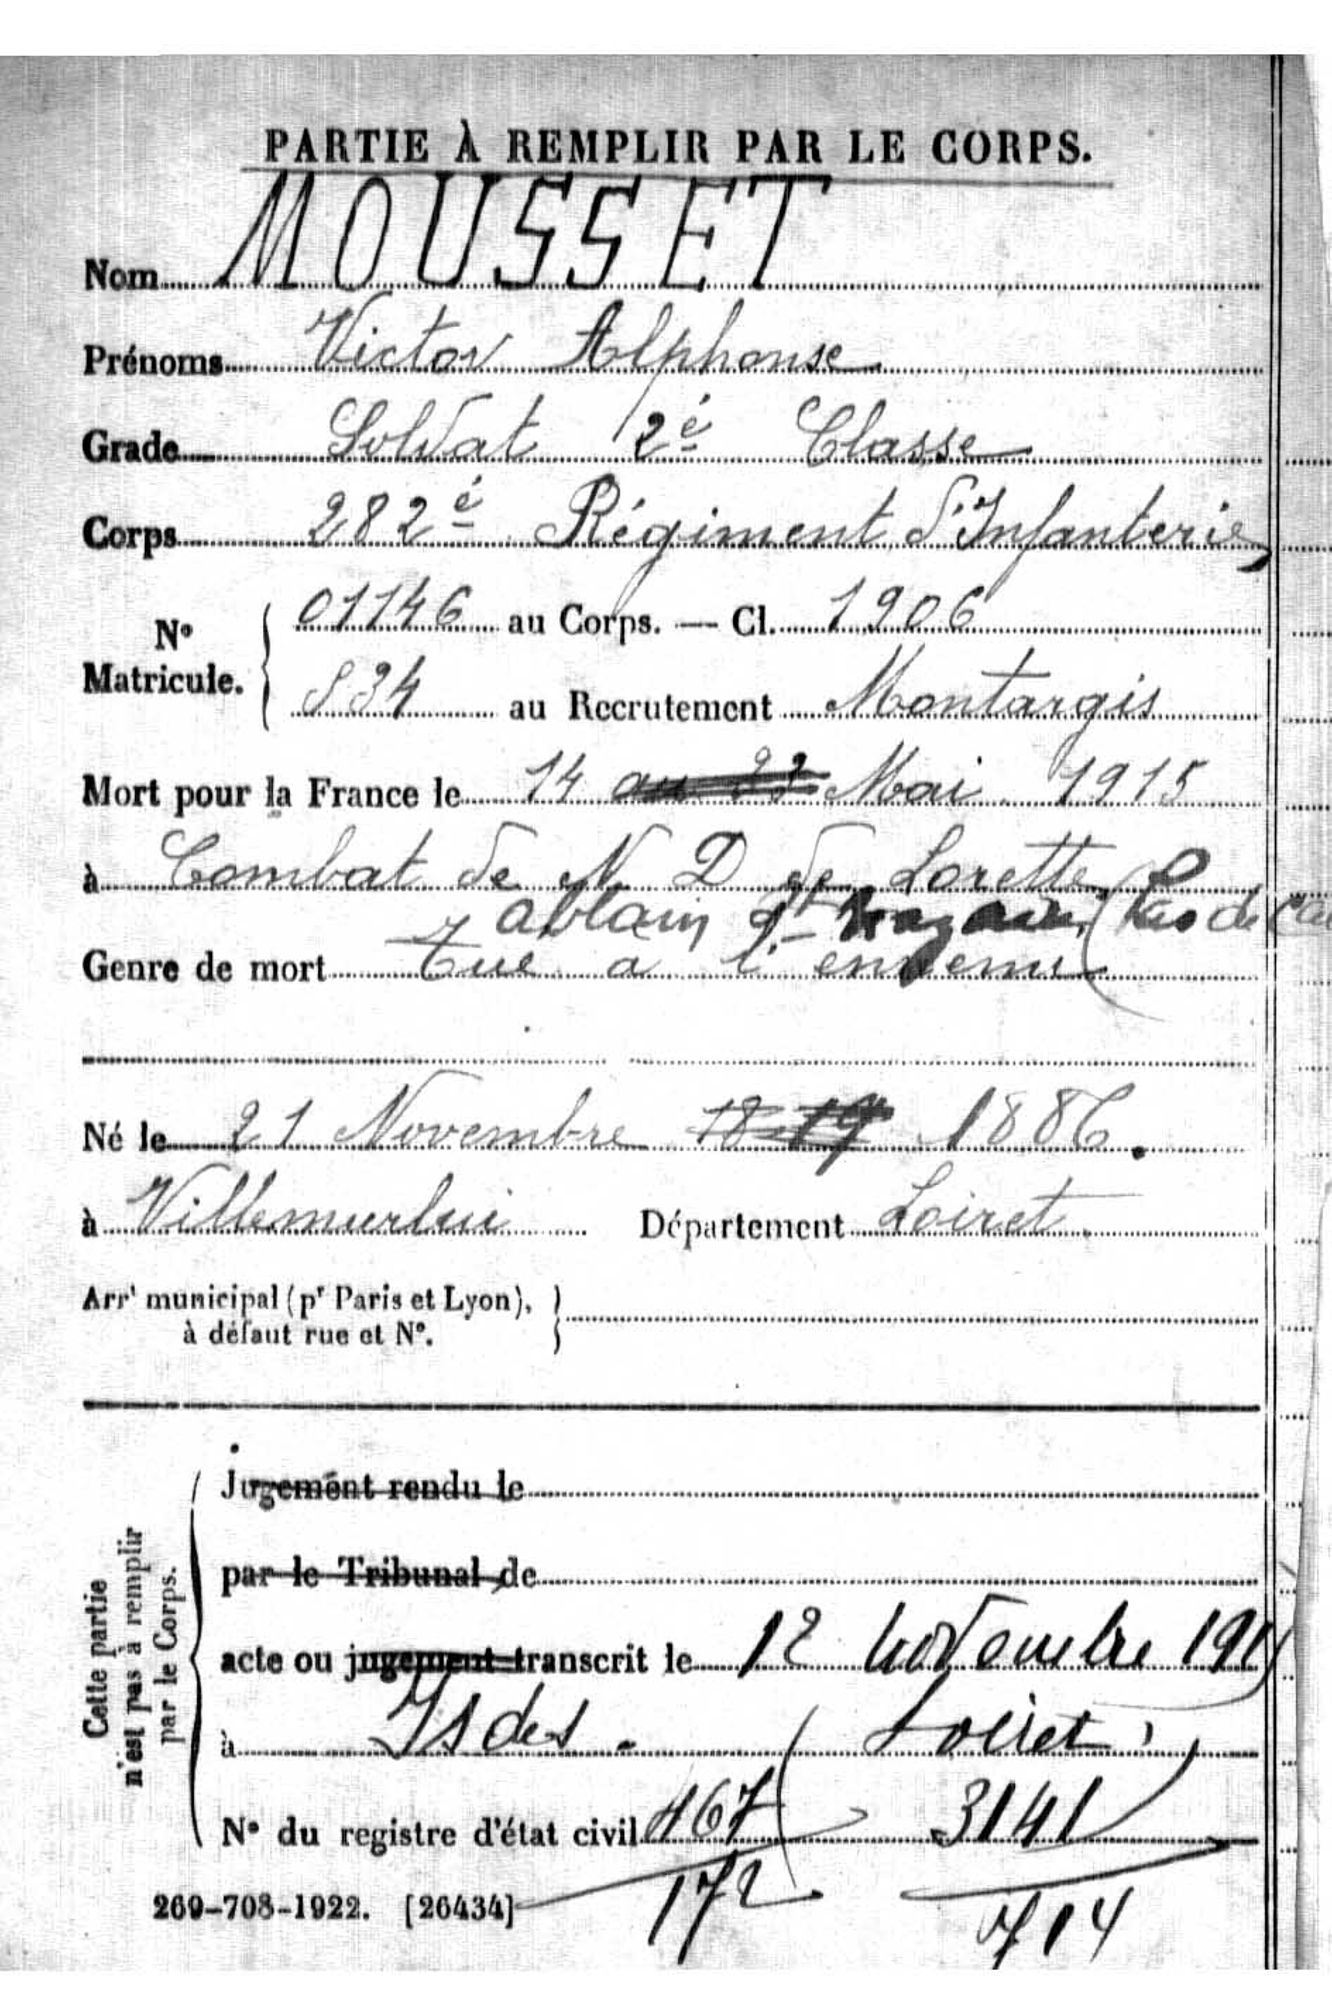 PARTIE À REMPLIR PAR LE CORPS.
Nom MOUSSET
Prénoms Victor Alphonse
Grade Soldat 2è Classe
Corps 282è Régiment d'Infanterie
N° Matricule. 01146 au Corps. — Cl. 1906
834 au Recrutement Montargis
Mort pour la France le 14 au 22 Mai 1915
à Combat de N D de Lorette
ablain St Nazaire (Pas de Cal
Genre de mort Tué a l'ennemi
Né le 21 Novembre 18 19 1886.
à Villemurlin Département Loiret
Arrt municipal (pr Paris et Lyon),
à défaut rue et N°.
Cette partie
n'est pas à remplir
par le Corps.
Jugement rendu le
par le Tribunal de
acte ou jugement transcrit le 12 Novembre
à Isdes. (Loiret)
N° du registre d'état civil 467 3141
172 714
269-708-1922. [26434]